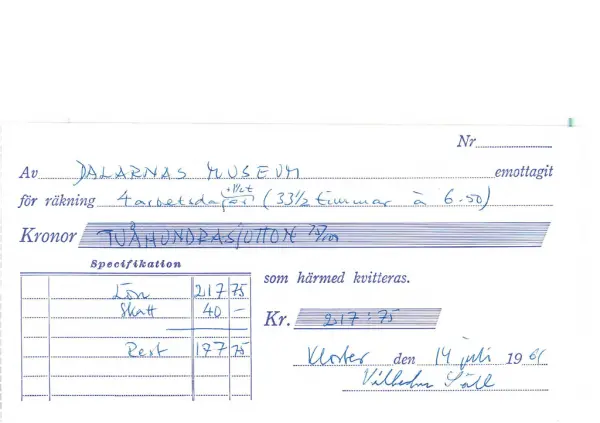 Nr
Av DALARNAS MUSEUM emottagit
+1½ t
för räkning 4 arbetsdagar (33½ timmar à 6.50)
Kronor TVÅHUNDRASJUTTON 75/100
Specifikation
som härmed kvitteras.
Lön 217 75
Skatt 40 –
Kr. 217:75
Rest 177 75
Kloster den 14 juli 1961
Vilhelm Säll